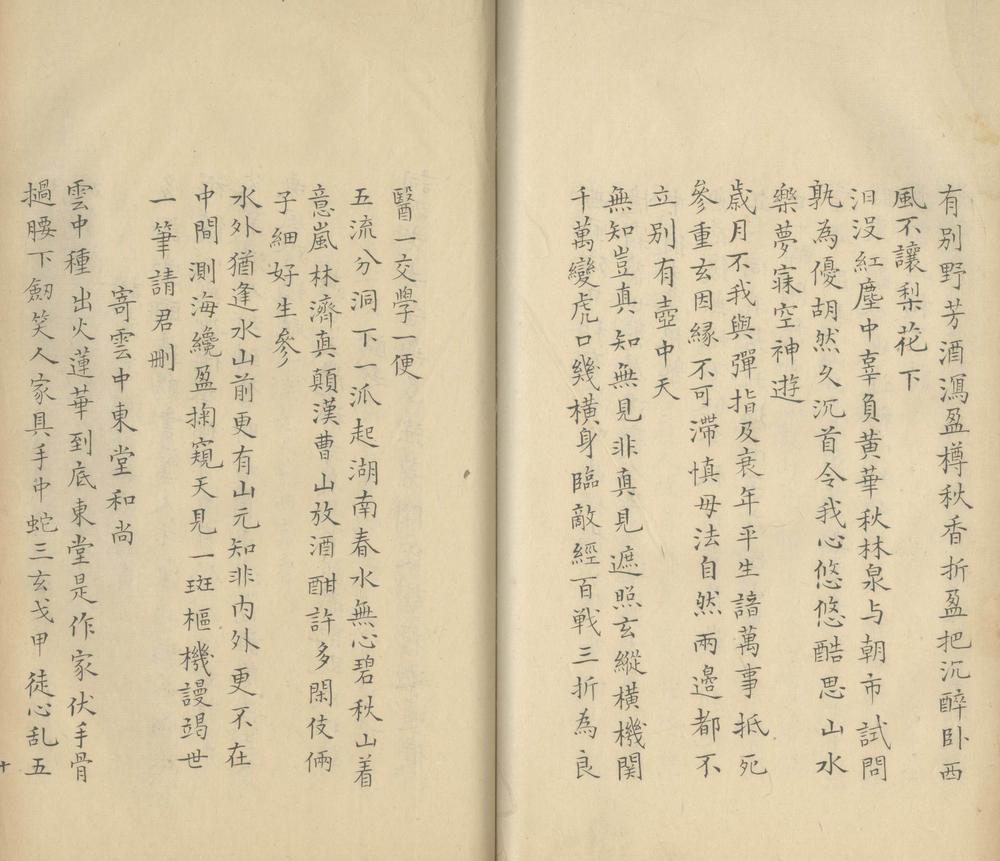 有別野芳酒瀉盈樽秋香折盈把沉醉卧西
風不讓梨花下
汩没紅塵中辜負黄華秋林泉与朝市試問
孰為優胡然久沉首令我心悠悠酷思山水
樂夢寐空神遊
歳月不我與彈指及衰年平生諳萬事抵死
參重玄因縁不可滞慎毋法自然兩邉都不
立別有壺中天
無知豈真知無見非真見遮照玄縱横機関
千萬變虎口幾横身臨敵經百戦三折為良
醫一交學一便
五流分洞下一派起湖南春水無心碧秋山着
意嵐林濟真顛漢曹山放酒酣許多閑伎倆
子細好生參
水外猶逢水山前更有山元知非内外更不在
中間測海纔盈掬窺天見一斑樞機謾竭世
一筆請君删
寄雲中東堂和尚
雲中種出火蓮華到底東堂是作家伏手骨
撾腰下劔笑人家具手中蛇三玄戈甲徒心乱五
十